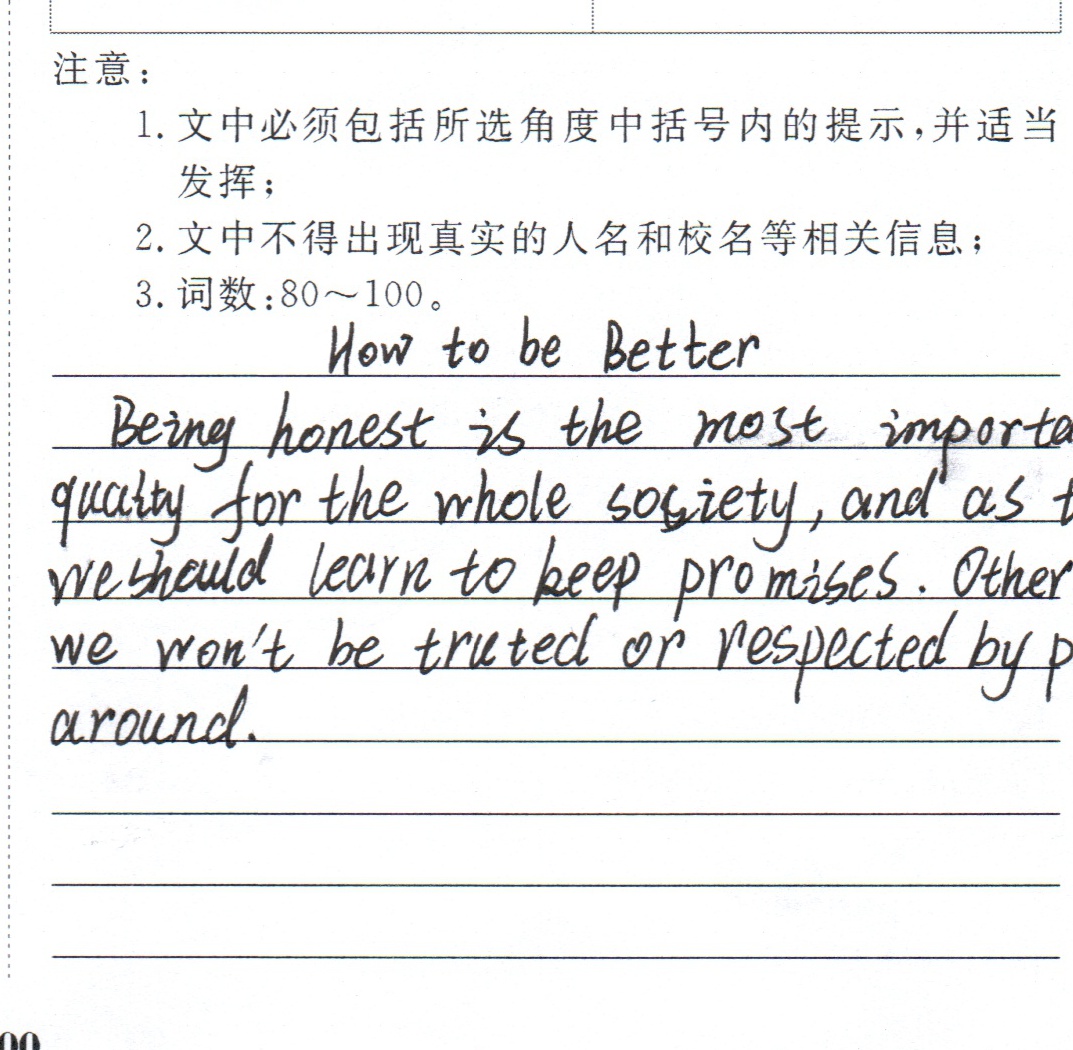 注意：
1. 文中必须包括所选角度中括号内的提示，并适当
发挥；
2. 文中不得出现真实的人名和校名等相关信息；
3. 词数：80～100。
How to be Better
Being honest is the most importa
quality for the whole society, and as t
we should learn to keep promises. Other
we won't be truted or respected by p
around.